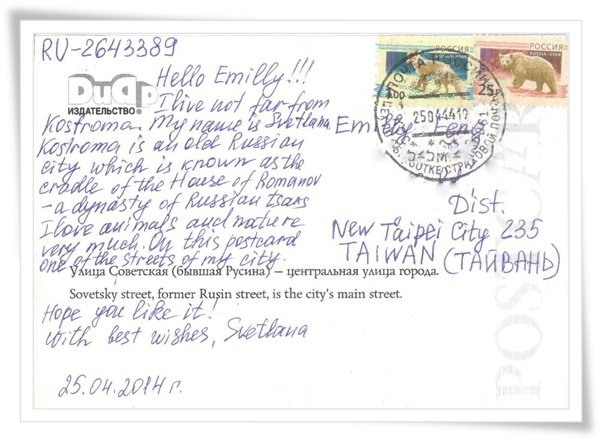 RU-2643389
РОССИЯ
РОССИЯ
RUSSIA
25
ДиАр
ИЗДАТЕЛЬСТВО
Hello Emilly!!!
I live not far from
Kostroma. My name is Svetlana.
Kostroma is an old Russian
city which is known as the
cradle of the House of Romanov
- a dynasty of Russian tsars
I love animals and nature
very much. On this postcard
one of the streets of my city.
Emilly
Dist.
New Taipei City 235
TAIWAN (ТАЙВАНЬ)
Улица Советская (бывшая Русина) — центральная улица города.
Sovetsky street, former Rusin street, is the city's main street.
Hope you like it!
With best wishes, Svetlana
25.04.2014 г.
POSTCARD